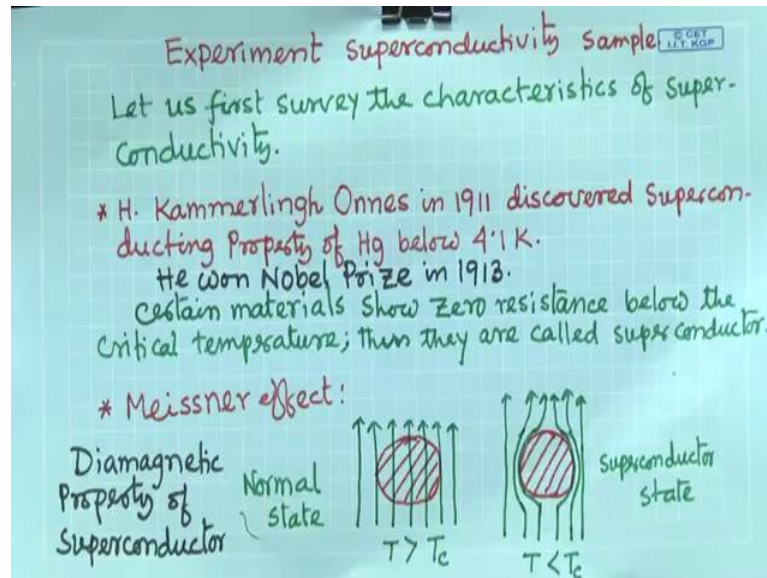 Experiment superconductivity sample
© CET
I.I.T. KGP
Let us first survey the characteristics of super-
conductivity.
* H. Kammerlingh Onnes in 1911 discovered Supercon-
ducting Property of Hg below 4.1 K.
He won Nobel Prize in 1913.
Certain materials show zero resistance below the
critical temperature; then they are called superconductor.
* Meissner effect:
Diamagnetic
Property of
Superconductor
Normal
state
T > Tc
Superconductor
state
T < Tc